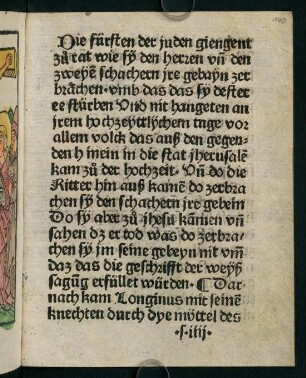 Die fürsten der juden giengent
zů rat wie sy den herren vñ den
zweyē schachern jre gebayn zer
brächen · vmb das das sy dester
ee stürben Vnd nit hangeten an
jrem hochzeyttlychem tage vor
allem volck das auß den gegen
den h inein in die stat jherusalē
kam zů der hochzeit · Vñ do die
Ritter hin auß kamē do zerbra
chen sy den schachern jre gebein
Do sy aber zů jhesu kāmen vñ
sahen dz er tod was do zerbra-
chen sy jm seine gebeyn nit vm̄
daz das die geschrifft der weyß
sagūg erfüllet würden · ¶ Dar
nach kam Longinus mit seinē
knechten durch dye möttel des
·s·iiij·